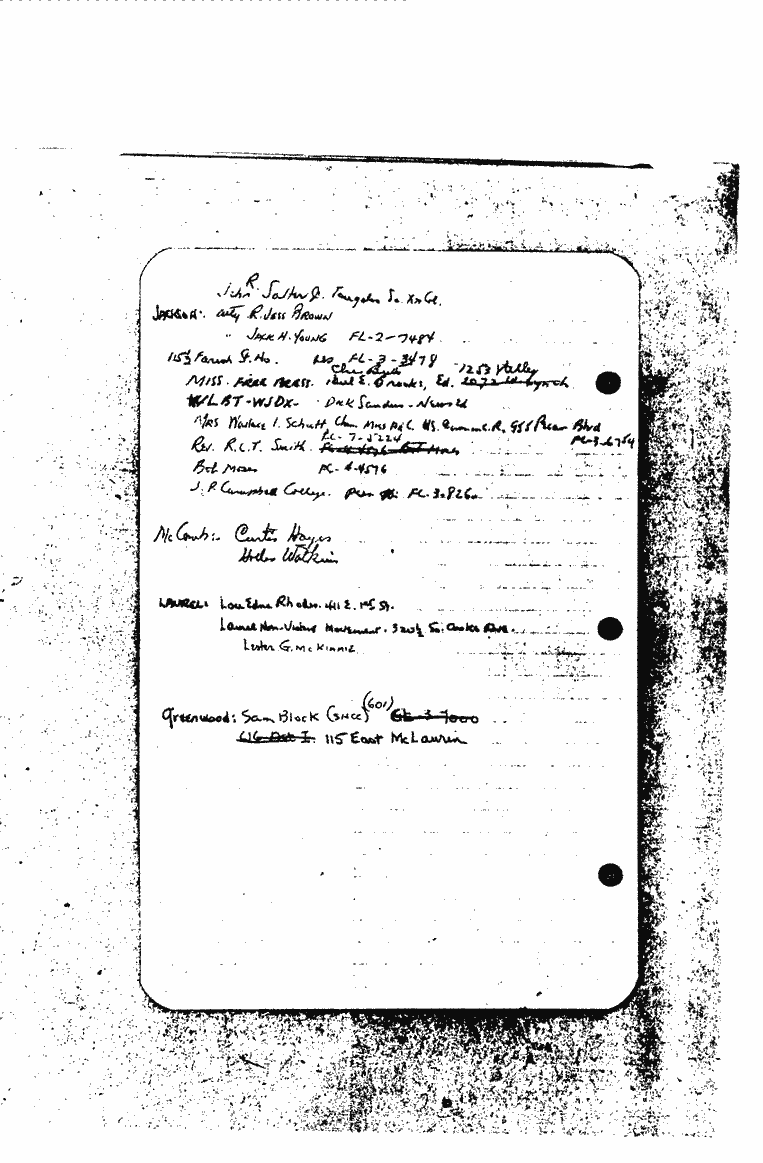 John R Salter Jr. Tougaloo So. Xn Col.
Jackson: atty R. Jess Brown
" Jack H. Young FL-2-7484
115½ Farish St. No. res FL-3-3478
1253 Valley
Miss. Free Press. Paul E. Brooks, Ed. 1072 Lynch
WLBT-WJDX- Dick Sanders - News
Mrs Wallace I. Schutt, Chm. Miss Ad C. US. Comm C.R, 955 Blvd
FL-7-5224
Rev. R.L.T. Smith Bob Moses
Bob Moses FL-4-4576
J. P Campbell College. FL-3-826
McComb:- Curtis Hayes
Hollis Watkins
Laurel: Lou Edna Rhodes. 411 E. 1st St.
Laurel Non-Violent Movement. 320½ So. Ave.
Lester G. McKinnie
Greenwood: Sam Block (SNCC) (601) GL-3-1000
616 Ave I. 115 East McLaurin